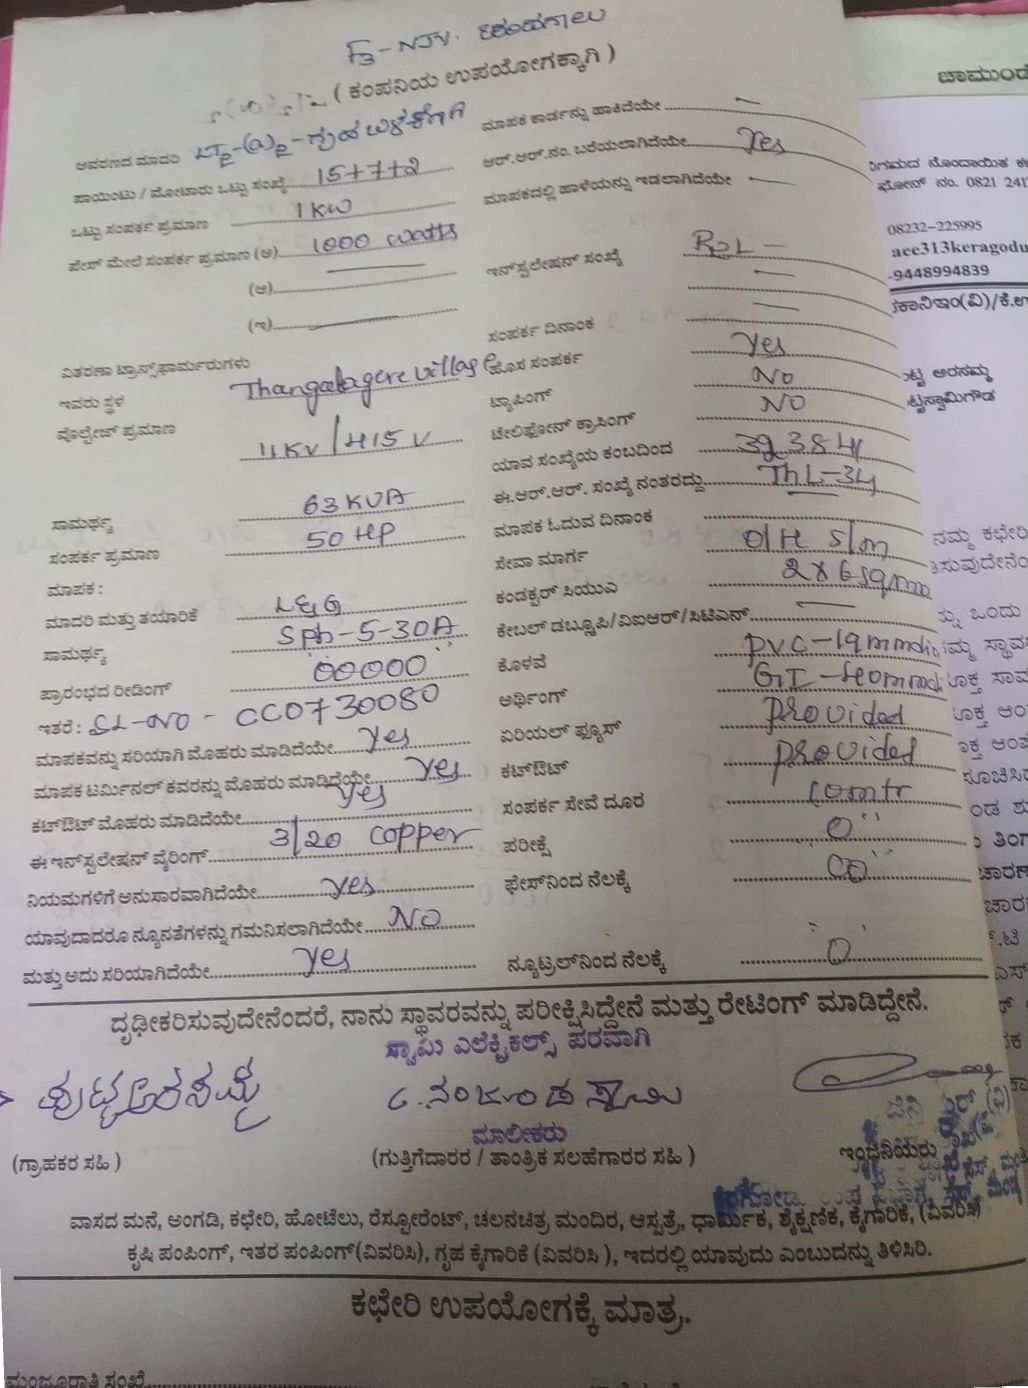 F3-NJY.
( ಕಂಪನಿಯ ಉಪಯೋಗಕ್ಕಾಗಿ )
ಆವರಣದ ಮಾದರಿ LT2-(a)2-ಗೃಹ ಬಳಕೆಗಾಗಿ
ಪಾಯಿಂಟು / ಮೋಟಾರು ಒಟ್ಟು ಸಂಖ್ಯೆ 15+7+2
ಒಟ್ಟು ಸಂಪರ್ಕ ಪ್ರಮಾಣ 1KW
ಫೇಸ್ ಮೇಲೆ ಸಂಪರ್ಕ ಪ್ರಮಾಣ (ಅ) 1000 watts
(ಆ)
(ಇ)
ವಿತರಣಾ ಟ್ರಾನ್ಸ್‌ಫಾರ್ಮರುಗಳು
ಇವರು ಸ್ಥಳ Thangalagere village
ವೋಲ್ಟೇಜ್ ಪ್ರಮಾಣ 11KV/415V
ಸಾಮರ್ಥ್ಯ 63KVA
ಸಂಪರ್ಕ ಪ್ರಮಾಣ 50HP
ಮಾಪಕ :
ಮಾದರಿ ಮತ್ತು ತಯಾರಿಕೆ L&G
ಸಾಮರ್ಥ್ಯ Sph-5-30A
ಪ್ರಾರಂಭದ ರೀಡಿಂಗ್ "00000"
ಇತರೆ : SL-NO - CC0730080
ಮಾಪಕವನ್ನು ಸರಿಯಾಗಿ ಮೊಹರು ಮಾಡಿದೆಯೇ yes
ಮಾಪಕ ಟರ್ಮಿನಲ್ ಕವರನ್ನು ಮೊಹರು ಮಾಡಿದೆಯೇ yes
ಕಟ್‌ಔಟ್ ಮೊಹರು ಮಾಡಿದೆಯೇ yes
ಈ ಇನ್‌ಸ್ಟಲೇಷನ್ ವೈರಿಂಗ್ 3/20 copper
ನಿಯಮಗಳಿಗೆ ಅನುಸಾರವಾಗಿದೆಯೇ yes
ಯಾವುದಾದರೂ ನ್ಯೂನತೆಗಳನ್ನು ಗಮನಿಸಲಾಗಿದೆಯೇ NO
ಮತ್ತು ಅದು ಸರಿಯಾಗಿದೆಯೇ yes
ಮಾಪಕ ಕಾರ್ಡನ್ನು ಹಾಕಿದೆಯೇ —
ಆರ್.ಆರ್.ನಂ. ಬರೆಯಲಾಗಿದೆಯೇ Yes
ಮಾಪಕದಲ್ಲಿ ಹಾಳೆಯನ್ನು ಇಡಲಾಗಿದೆಯೇ —
ಇನ್‌ಸ್ಟಲೇಷನ್ ಸಂಖ್ಯೆ
ಸಂಪರ್ಕ ದಿನಾಂಕ —
ಹೊಸ ಸಂಪರ್ಕ Yes
ಟ್ಯಾಪಿಂಗ್ NO
ಟೇಲಿಫೋನ್ ಕ್ರಾಸಿಂಗ್ NO
ಯಾವ ಸಂಖ್ಯೆಯ ಕಂಬದಿಂದ
ಈ.ಆರ್.ಆರ್. ಸಂಖ್ಯೆ ನಂತರದ್ದು ThL-34
ಮಾಪಕ ಓದುವ ದಿನಾಂಕ
ಸೇವಾ ಮಾರ್ಗ O/H S/m
ಕಂಡಕ್ಟರ್ ಸಿಯುಎ 2x6sqmm
ಕೇಬಲ್ ಡಬ್ಲ್ಯೂಪಿ/ವಿಐಆರ್/ಸಿಟಿಎಸ್ —
ಕೊಳವೆ PVC-19mmdia
ಅರ್ಥಿಂಗ್ GI-40mmdi
ಏರಿಯಲ್ ಫ್ಯೂಸ್ provided
ಕಟ್‌ಔಟ್ provided
ಸಂಪರ್ಕ ಸೇವೆ ದೂರ 10mtr
ಪರೀಕ್ಷೆ "0"
ಫೇಸ್‌ನಿಂದ ನೆಲಕ್ಕೆ
ನ್ಯೂಟ್ರಲ್‌ನಿಂದ ನೆಲಕ್ಕೆ "0"
ದೃಢೀಕರಿಸುವುದೇನೆಂದರೆ, ನಾನು ಸ್ಥಾವರವನ್ನು ಪರೀಕ್ಷಿಸಿದ್ದೇನೆ ಮತ್ತು ರೇಟಿಂಗ್ ಮಾಡಿದ್ದೇನೆ.
ಸ್ವಾಮಿ ಎಲೆಕ್ಟ್ರಿಕಲ್ಸ್ ಪರವಾಗಿ
ಪುಟ್ಟಅರಸಮ್ಮ
ನಂಜುಂಡ ಸ್ವಾಮಿ
ಮಾಲೀಕರು
(ಗ್ರಾಹಕರ ಸಹಿ )
(ಗುತ್ತಿಗೆದಾರರ / ತಾಂತ್ರಿಕ ಸಲಹೆಗಾರರ ಸಹಿ )
ಇಂಜಿನಿಯರು
ವಾಸದ ಮನೆ, ಅಂಗಡಿ, ಕಛೇರಿ, ಹೋಟೆಲು, ರೆಸ್ಟೋರೆಂಟ್, ಚಲನಚಿತ್ರ ಮಂದಿರ, ಆಸ್ಪತ್ರೆ, ಧಾರ್ಮಿಕ, ಶೈಕ್ಷಣಿಕ, ಕೈಗಾರಿಕೆ, (ವಿವರಿಸಿ)
ಕೃಷಿ ಪಂಪಿಂಗ್, ಇತರ ಪಂಪಿಂಗ್(ವಿವರಿಸಿ), ಗೃಹ ಕೈಗಾರಿಕೆ (ವಿವರಿಸಿ ), ಇದರಲ್ಲಿ ಯಾವುದು ಎಂಬುದನ್ನು ತಿಳಿಸಿರಿ.
ಕಛೇರಿ ಉಪಯೋಗಕ್ಕೆ ಮಾತ್ರ.
ಮಂಜೂರಾತಿ ಸಂಖ್ಯೆ
ಚಾಮುಂಡ
ನಿಗಮದ ನೊಂದಾಯಿತ ಕ
ಫೋನ್ ನಂ. 0821 241
08232-225995
aee313keragodu
-9448994839